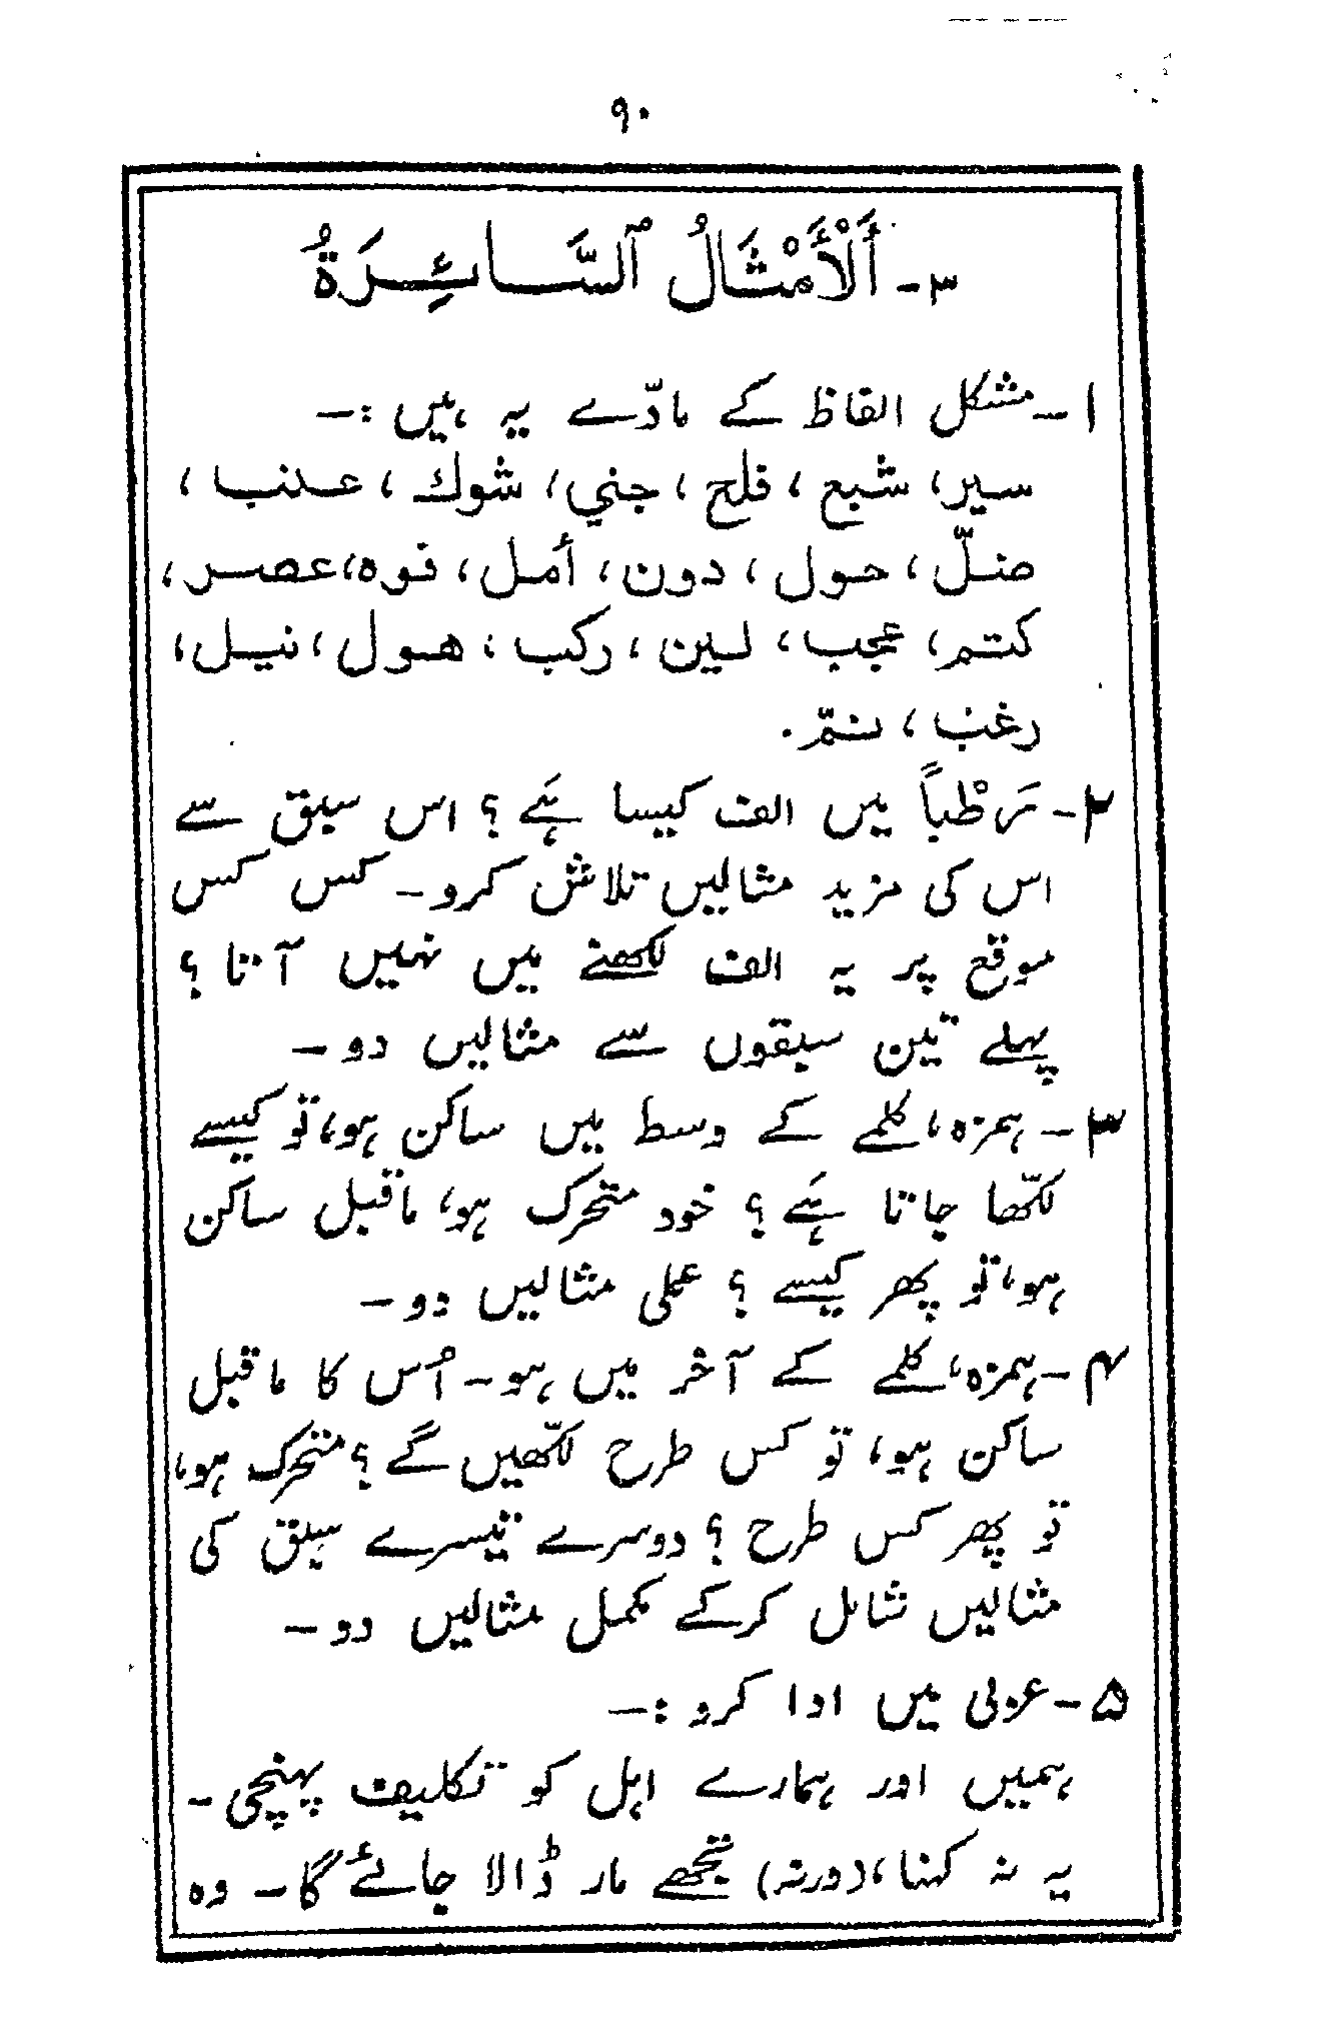 ۹۰
۳- أَلْأَمْثَالُ ٱلسَّائِرَةُ
۱- مشکل الفاظ کے مادّے یہ ہیں :-
سير، شبع، فلح، جني، شوك، عنب،
ضلّ، حول، دون، أمل، فوه، عصر،
كتم، عجب، لين، ركب، هول، نيل،
رغب، نمّ.
۲- رَطْباً میں الف کیسا ہَے ؟ اس سبق سے
اس کی مزید مثالیں تلاش کرو- کس کس
موقع پر یہ الف لکھنے میں نہیں آتا ؟
پہلے تین سبقوں سے مثالیں دو-
۳- ہمزہ، کلمے کے وسط میں ساکن ہو، تو کیسے
لکّھا جاتا ہَے ؟ خود متحرک ہو، ماقبل ساکن
ہو، تو پھر کیسے ؟ عملی مثالیں دو-
۴- ہمزہ، کلمے کے آخر میں ہو- اُس کا ماقبل
ساکن ہو، تو کس طرح لکّھیں گے ؟ متحرک ہو،
تو پھر کس طرح ؟ دوسرے تیسرے سبق کی
مثالیں شامل کرکے مکمل مثالیں دو-
۵- عربی میں ادا کرو :-
ہمیں اور ہمارے اہل کو تکلیف پہنچی-
یہ نہ کہنا، (ورنہ) تجھے مار ڈالا جائے گا- وہ